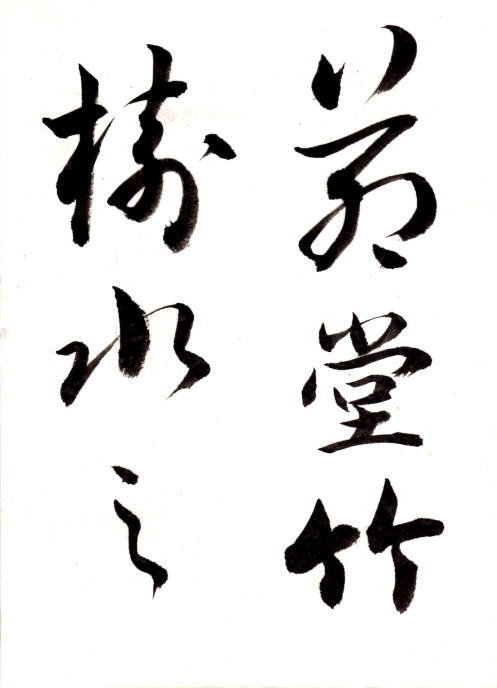 茅堂竹
樹水之